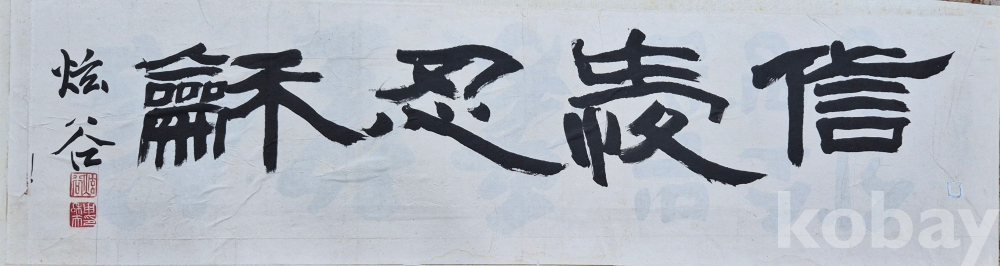 信愛忍龢
炫谷
kobay